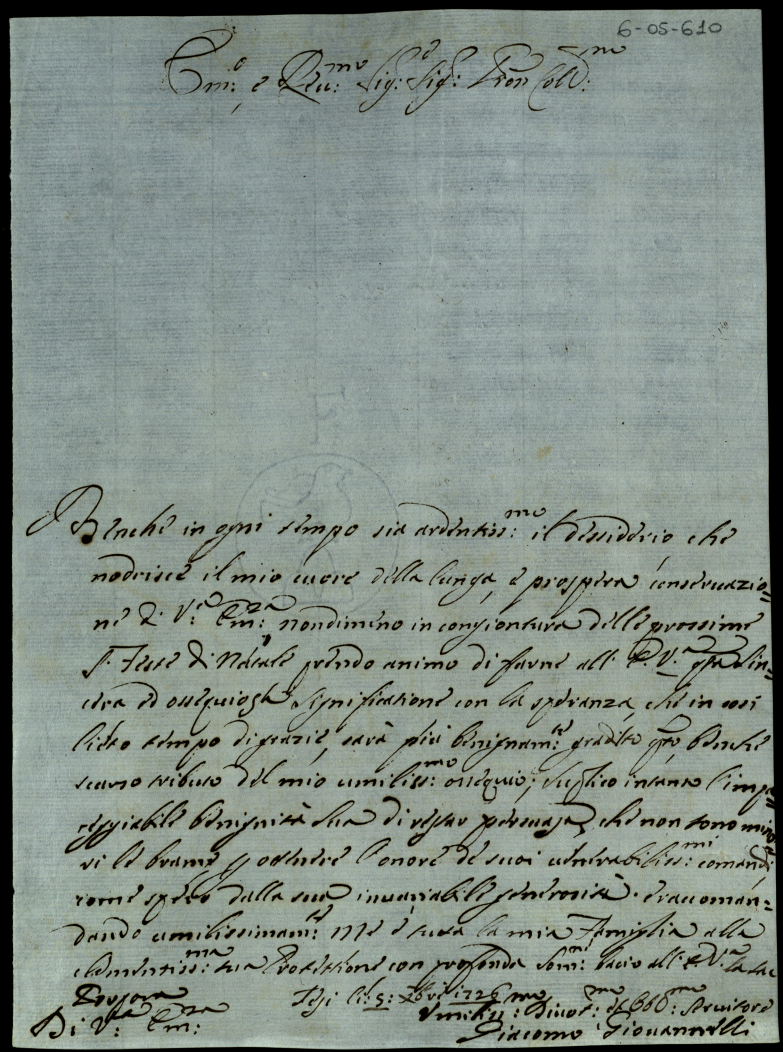 6-05-610
Em:o e Reu:mo Sig:e Sig: Pron Coll:mo
Benche in ogni tempo sia ardentiss:mo il dessiderio che
nodrisce il mio cuore della lunga, e prospera conseruazio=
ne di V:a Em:za nondimeno in congiontura delle prossime
S. Feste di Natale prendo animo di farne all' E.V.a qta sin=
cera ed ossequiosa significatione con la speranza, che in cosi
lieto tempo di grazie, sarà più benignam:te gradito qto, benche
scarso tributo del mio umiliss:mo ossequio; suplico intanto l'impa=
reggiabile benignità sua di restar persuasa, che non sono mino=
ri le brame p ottenere l'onore de suoi uenerabiliss:mi comandi
come spero dalla sua inuariabile generosità. e racoman=
dando umilissimam:te me e tutta la mia Famiglia alla
clementiss:ma sua Protettione con profonda Som:ne bacio all' E.V.a la sac
Porpora
Di V:a Em:za
Jesi li: 5: Xbre 1726
Umiliss:mo Diuot:mo ed Obb:mo Seruitore
Giacomo Giouannelli